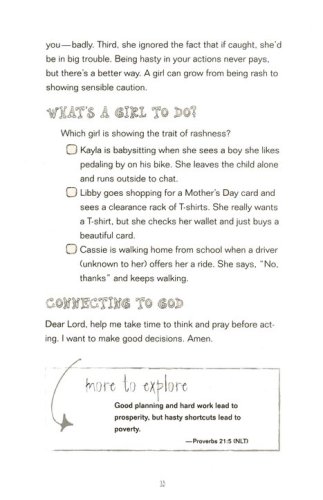 you—badly. Third, she ignored the fact that if caught, she'd
be in big trouble. Being hasty in your actions never pays,
but there's a better way. A girl can grow from being rash to
showing sensible caution.
WHAT'S A GIRL TO DO?
Which girl is showing the trait of rashness?
Kayla is babysitting when she sees a boy she likes
pedaling by on his bike. She leaves the child alone
and runs outside to chat.
Libby goes shopping for a Mother's Day card and
sees a clearance rack of T-shirts. She really wants
a T-shirt, but she checks her wallet and just buys a
beautiful card.
Cassie is walking home from school when a driver
(unknown to her) offers her a ride. She says, "No,
thanks" and keeps walking.
CONNECTING TO GOD
Dear Lord, help me take time to think and pray before act-
ing. I want to make good decisions. Amen.
more to explore
Good planning and hard work lead to
prosperity, but hasty shortcuts lead to
poverty.
—Proverbs 21:5 (NLT)